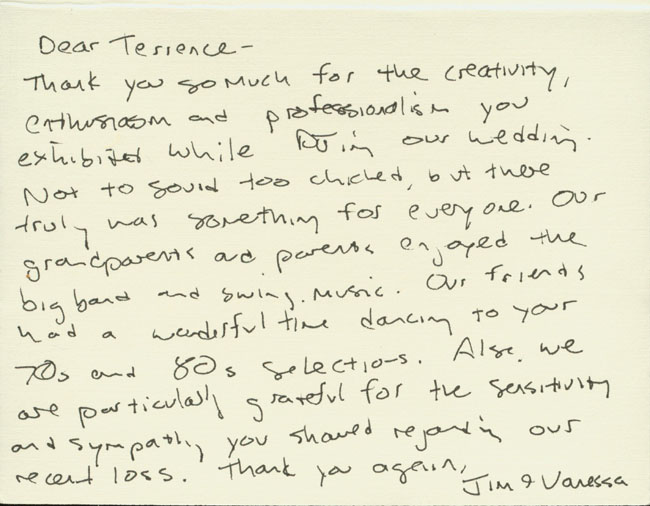 Dear Terrence -
Thank you so much for the creativity,
enthusiasm and professionalism you
exhibited while DJing our wedding.
Not to sound too cliched, but there
truly was something for everyone. Our
grandparents and parents enjoyed the
big band and swing music. Our friends
had a wonderful time dancing to your
70s and 80s selections. Also, we
are particularly grateful for the sensitivity
and sympathy you showed regarding our
recent loss. Thank you again,
Jim & Vanessa